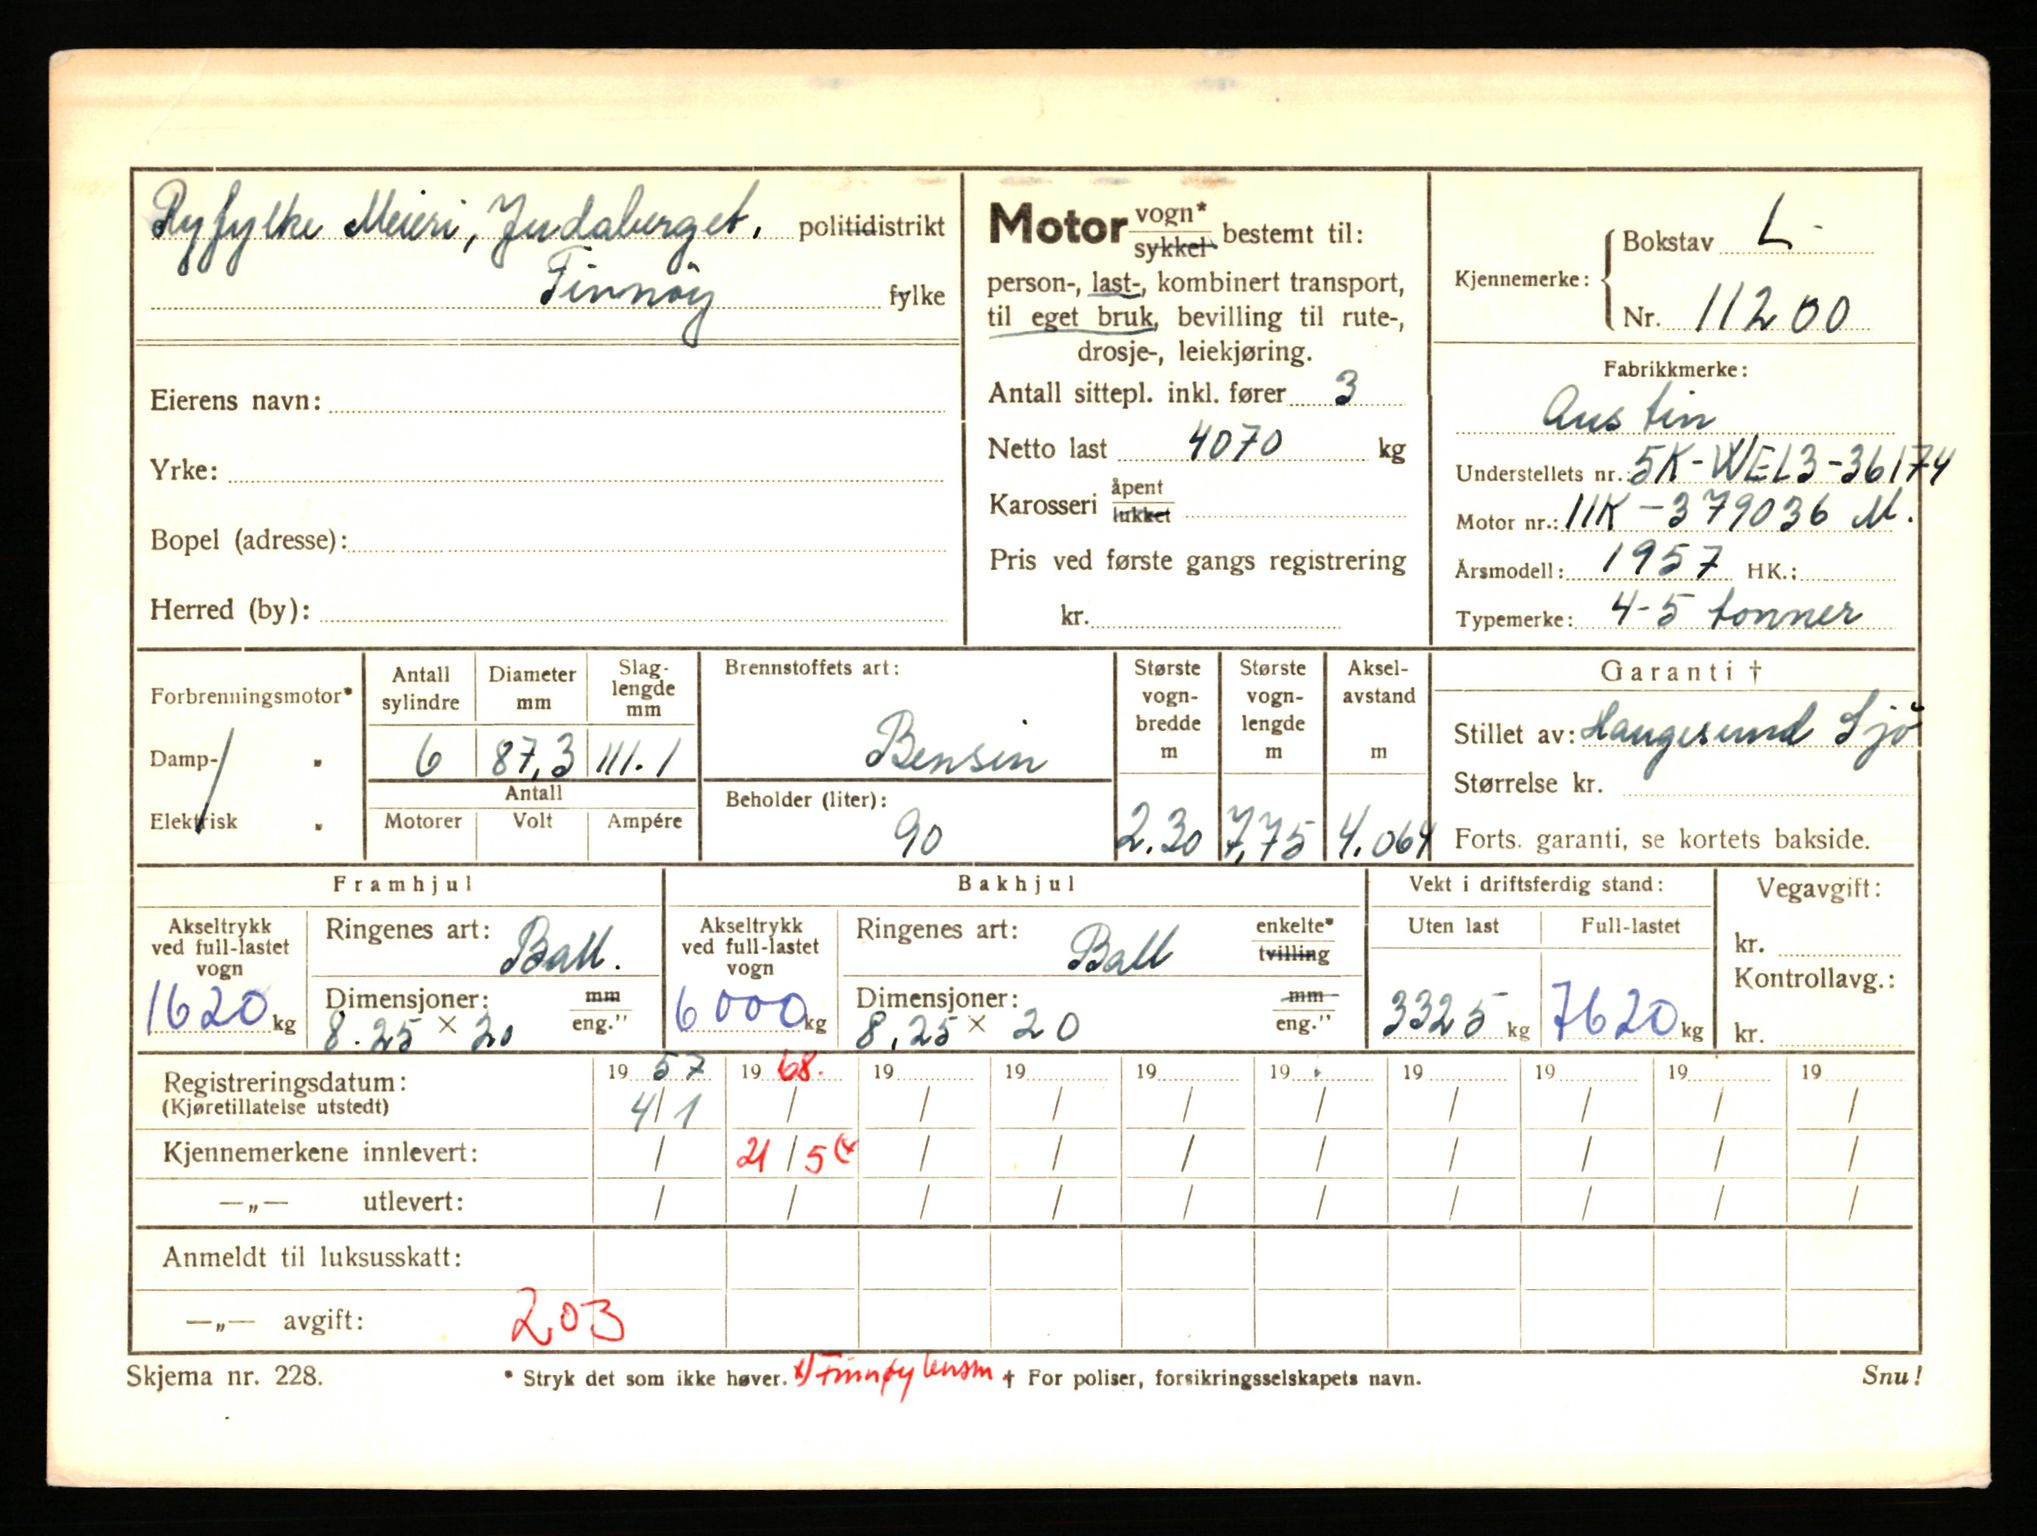 Ryfylke Meieri, Judaberget, politidistrikt
Finnöy fylke
Eierens navn:
Yrke:
Bopel (adresse):
Herred (by):
Motor vogn* sykkel bestemt til:
person-, last-, kombinert transport,
til eget bruk, bevilling til rute-,
drosje-, leiekjøring.
Antall sittepl. inkl. fører 3
Netto last 4070 kg
Karosseri åpent lukket
Pris ved første gangs registrering
kr.
Kjennemerke: Bokstav L
Nr. 11200
Fabrikkmerke:
Austin
Understellets nr.: 5K-WEL3-36174
Motor nr.: 11K-379036 M.
Årsmodell: 1957 HK.:
Typemerke: 4-5 tonner
Forbrenningsmotor*
Damp- "
Elektrisk "
Antall sylindre 6
Diameter mm 87,3
Slag-lengde mm 111.1
Antall
Motorer Volt Ampére
Brennstoffets art:
Bensin
Beholder (liter):
90
Største vogn-bredde m 2.30
Største vogn-lengde m 7,75
Aksel-avstand m 4.064
Garanti †
Stillet av: Haugesund Sjö
Størrelse kr.
Forts. garanti, se kortets bakside.
Framhjul
Akseltrykk ved full-lastet vogn 1620 kg
Ringenes art: Ball.
Dimensjoner: mm eng."
8.25 × 20
Bakhjul
Akseltrykk ved full-lastet vogn 6000 kg
Ringenes art: Ball enkelte* tvilling
Dimensjoner: mm eng."
8,25 × 20
Vekt i driftsferdig stand:
Uten last 3325 kg
Full-lastet 7620 kg
Vegavgift:
kr.
Kontrollavg.:
kr.
Registreringsdatum: 19 57 19 68. 19 19 19 19 19 19 19 19
(Kjøretillatelse utstedt) 4/1 / / / / / / / / /
Kjennemerkene innlevert: / 21/5 (* / / / / / / / /
—„— utlevert: / / / / / / / / / /
Anmeldt til luksusskatt:
—„— avgift: 203
Skjema nr. 228. * Stryk det som ikke høver. *) Finnøy lensm † For poliser, forsikringsselskapets navn. Snu!